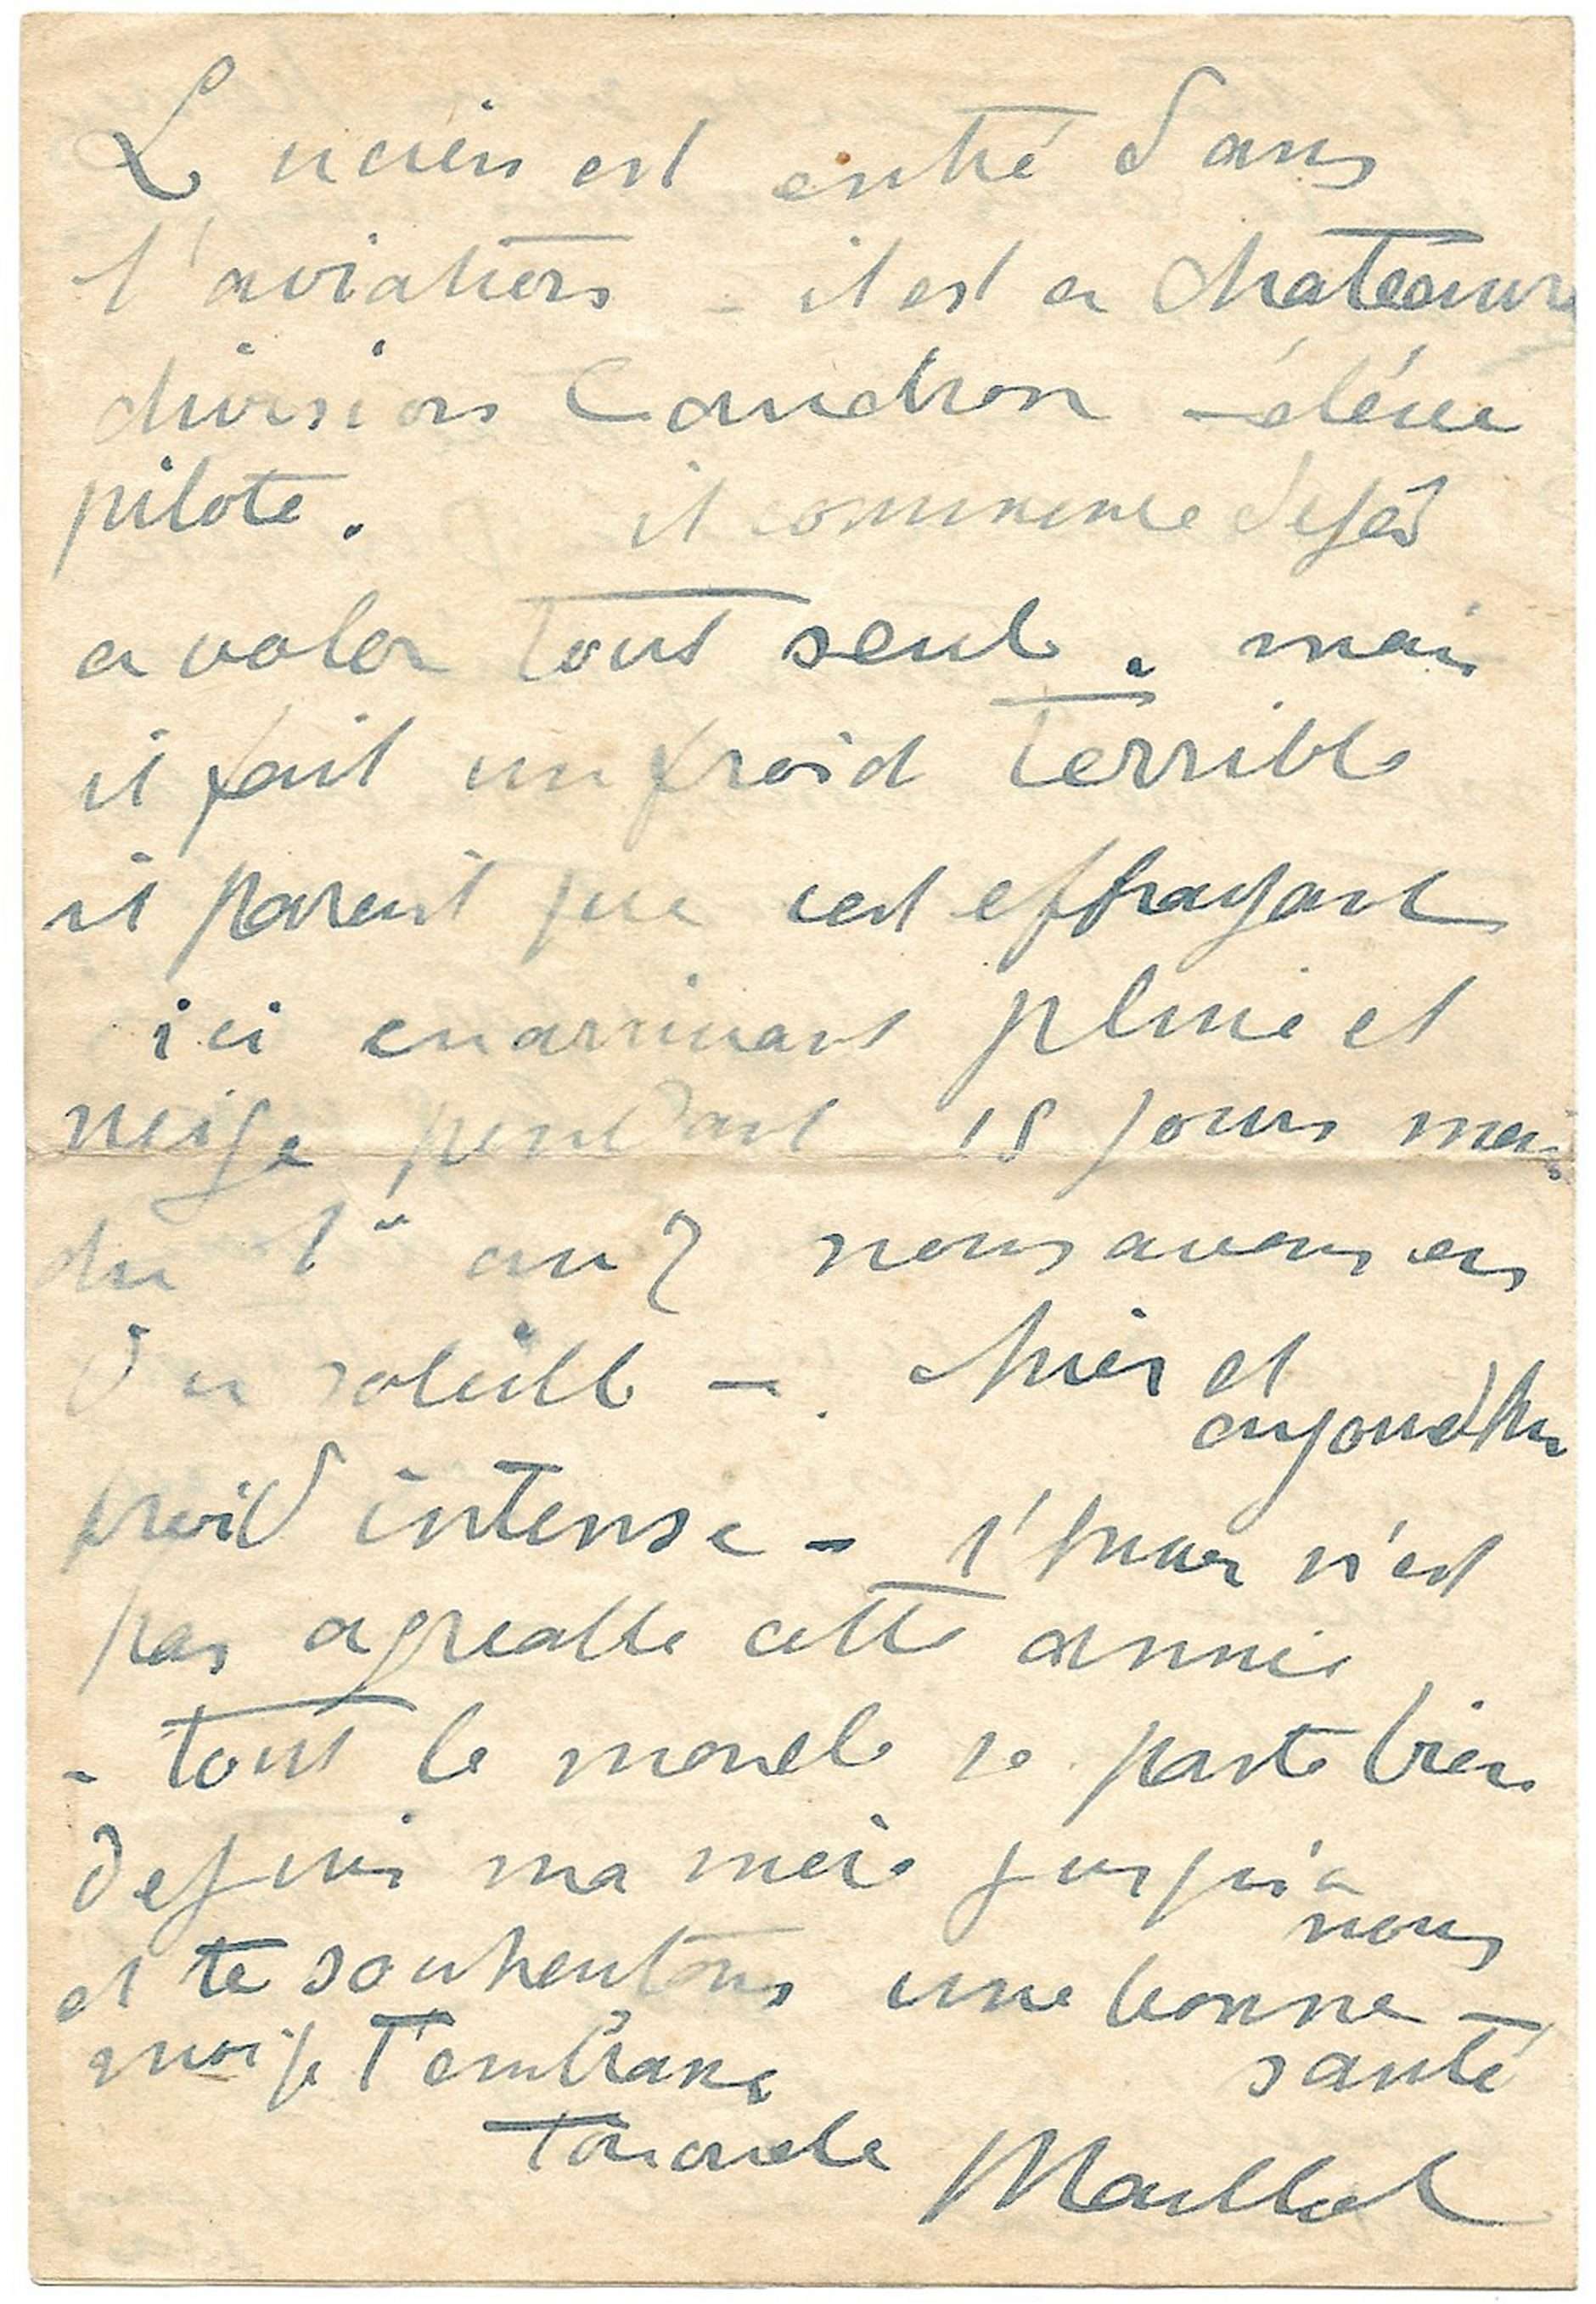 Lucien est entré dans
l'aviation - il est a chateauro
division Caudron - élève
pilote. il commence dejà
a voler tout seul. mais
il fait un froid terrible
il parait que cest effrayant
ici en arrivant pluie et
neige pendant 15 jours mais
du 1er au 7 nous avons eu
du soleill - . hier et
aujourd'hu
froid intense - l'hiver n'est
pas agreable cette année
- tout le monde se porte bien
depuis ma mère jusqu'a
nous
et te souhentons une bonne -
santé
moi je t'embrasse
ton oncle Maillol